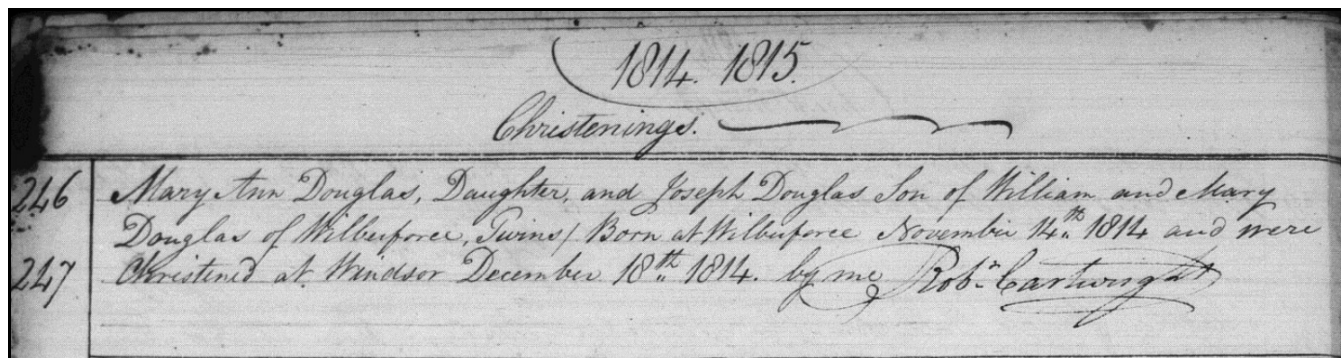 1814. 1815.
Christenings.
246 Mary Ann Douglas, Daughter, and Joseph Douglas Son of William and Mary
Douglas of Wilberforce, Twins/ Born at Wilberforce November 14th. 1814 and were
247 Christened at Windsor December 18th. 1814. by me Robt. Cartwright